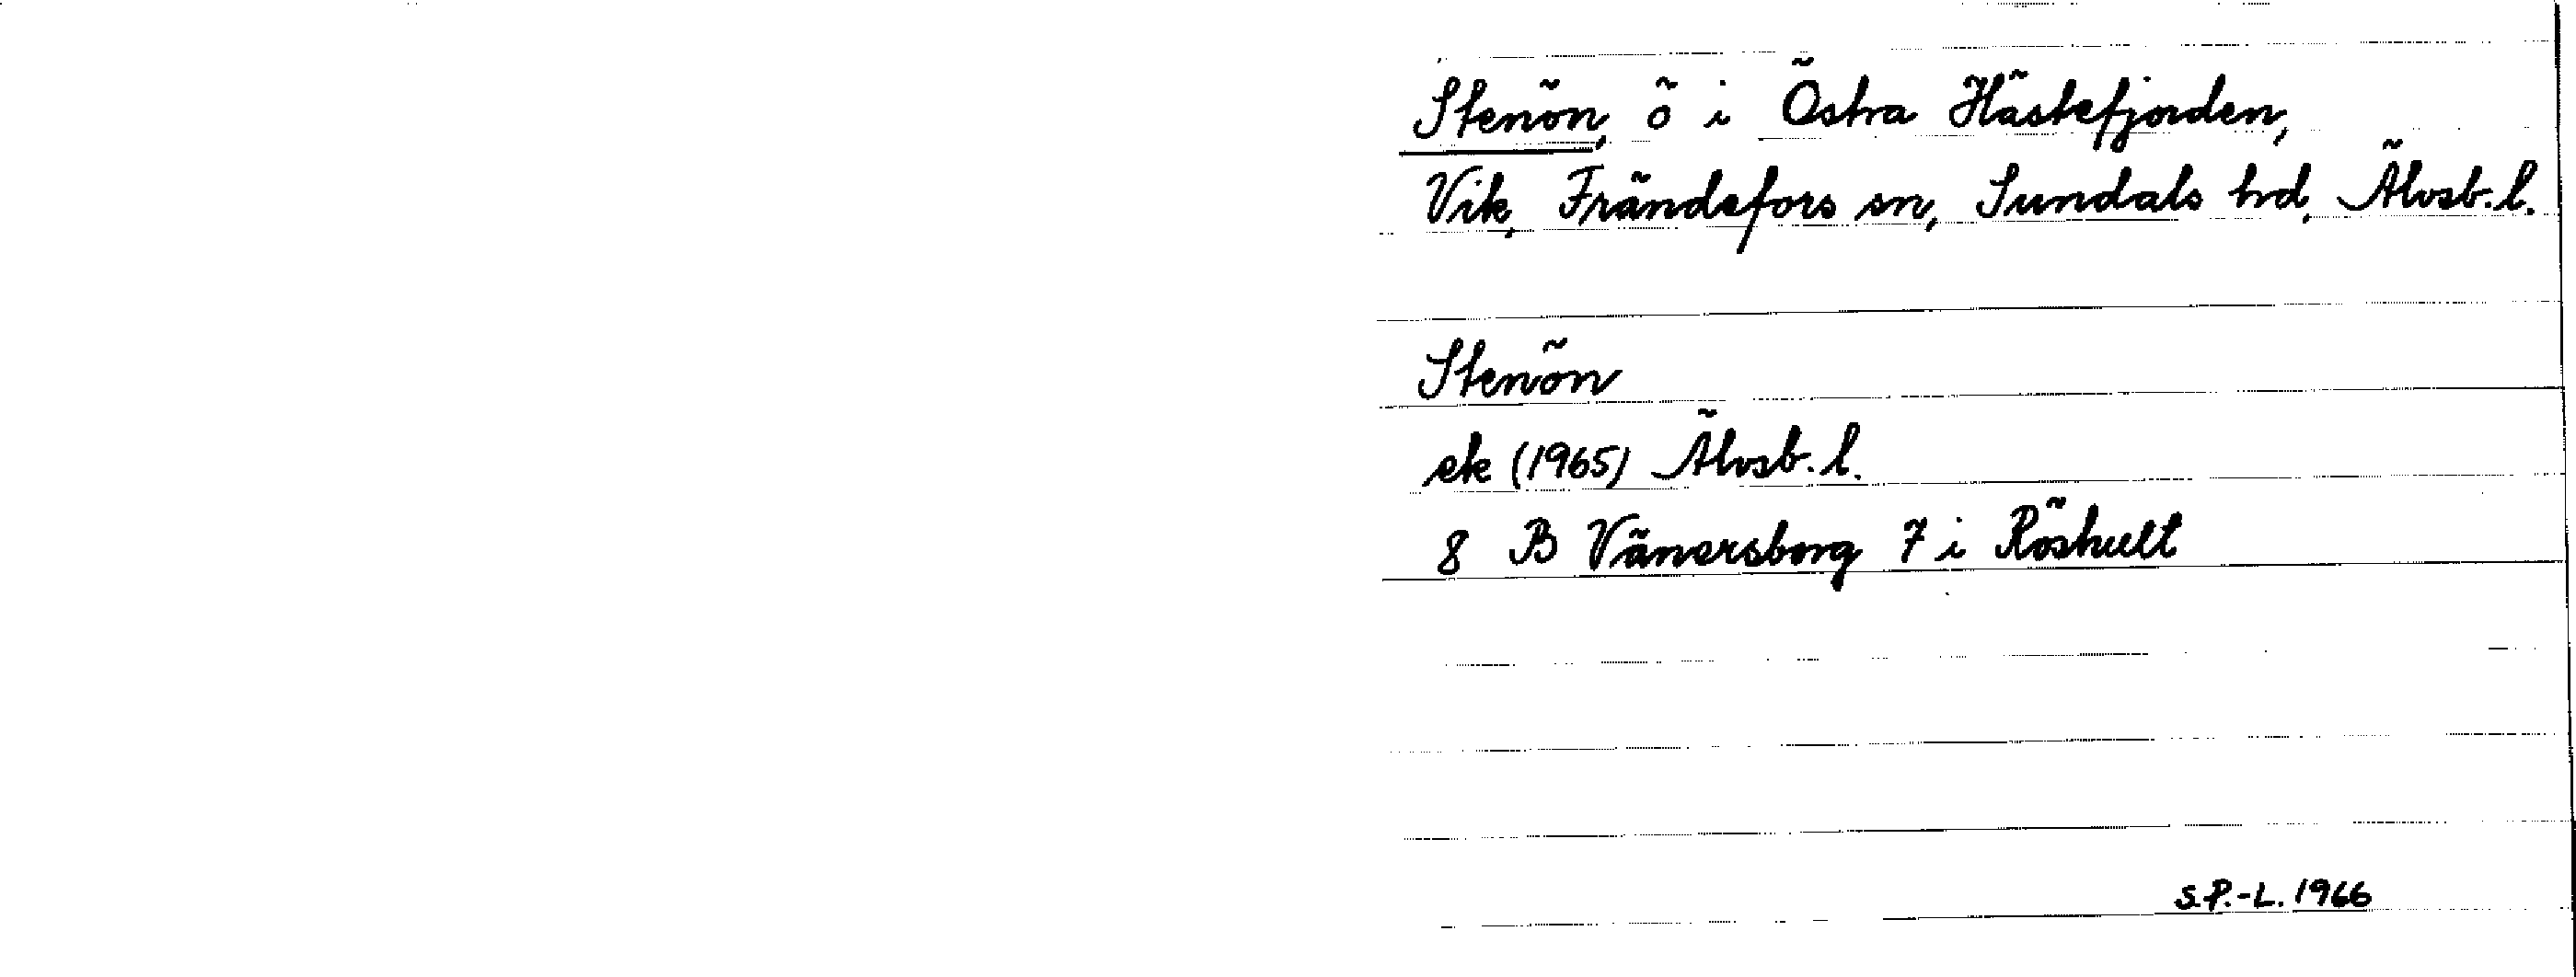 Stenön, ö i Östra Hästefjorden,
Vik, Frändefors sn, Sundals hd, Älvsb. l.
Stenön
ek (1965) Älvsb. l.
8 B Vänersborg 7 i Röshult
S.P.-L. 1966